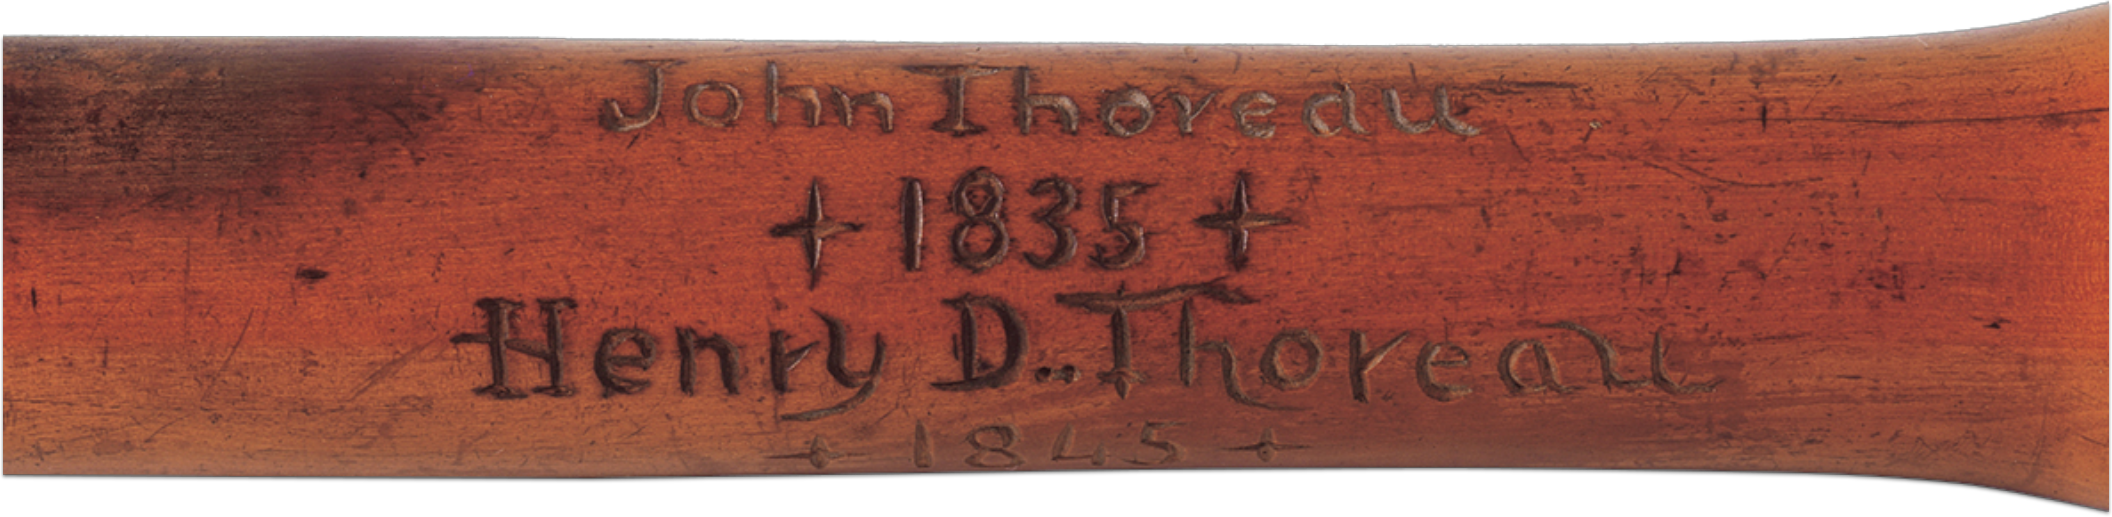 John Thoreau
+ 1835 +
Henry D.. Thoreau
+ 1845 +